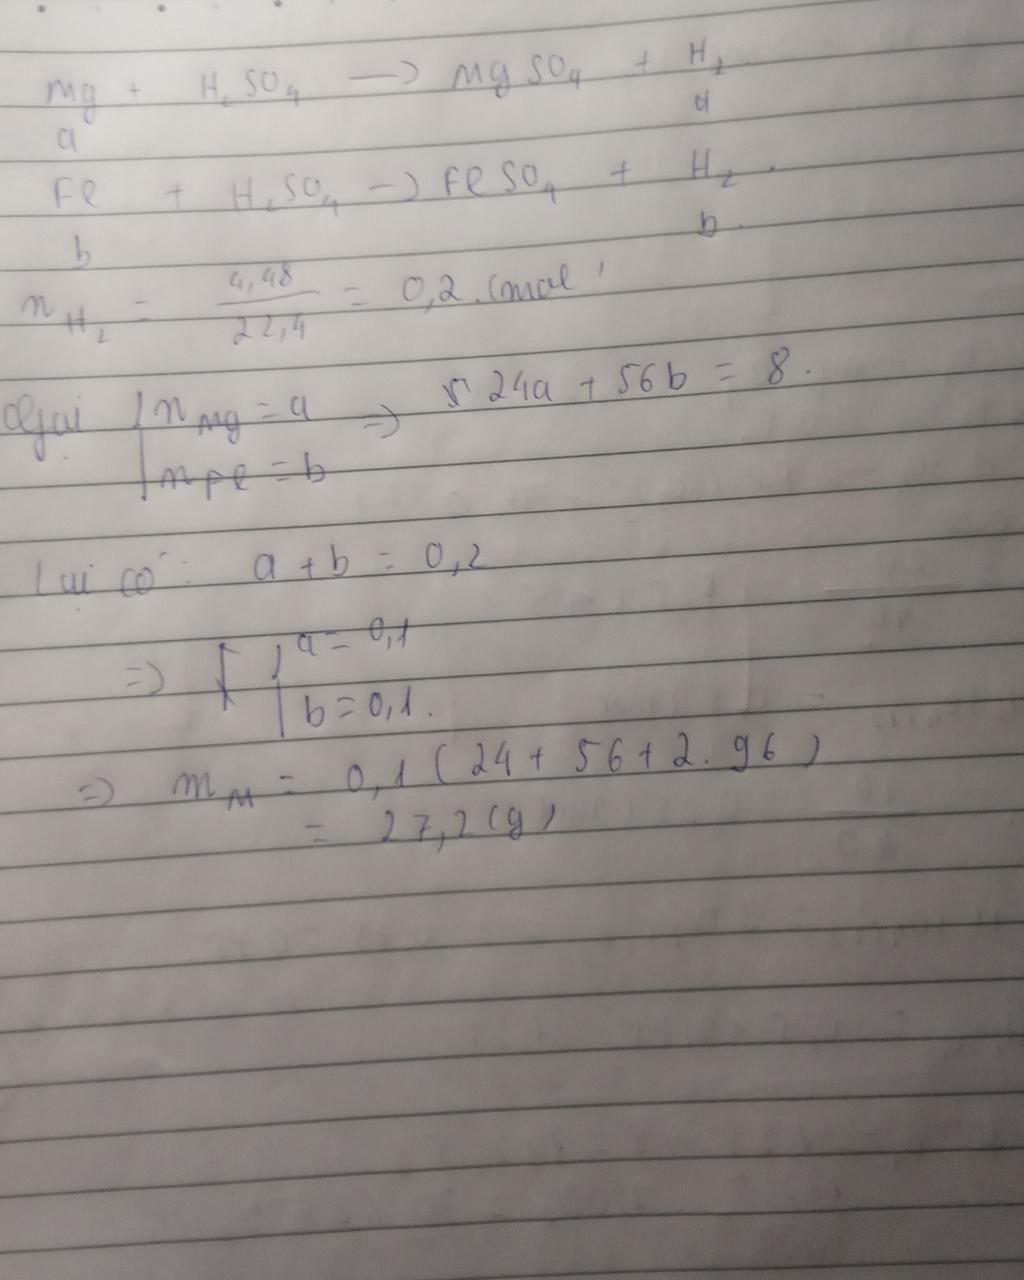 Mg + H2SO4 → MgSO4 + H2
a a
Fe + H2SO4 → FeSO4 + H2.
b b.
nH2 = 4,48/22,4 = 0,2 (mol)
Gọi { nMg = a ⇒ 24a + 56b = 8.
nFe = b
Lại có: a + b = 0,2
⇒ { a = 0,1
b = 0,1.
⇒ mM = 0,1 (24 + 56 + 2.96)
= 27,2 (g)